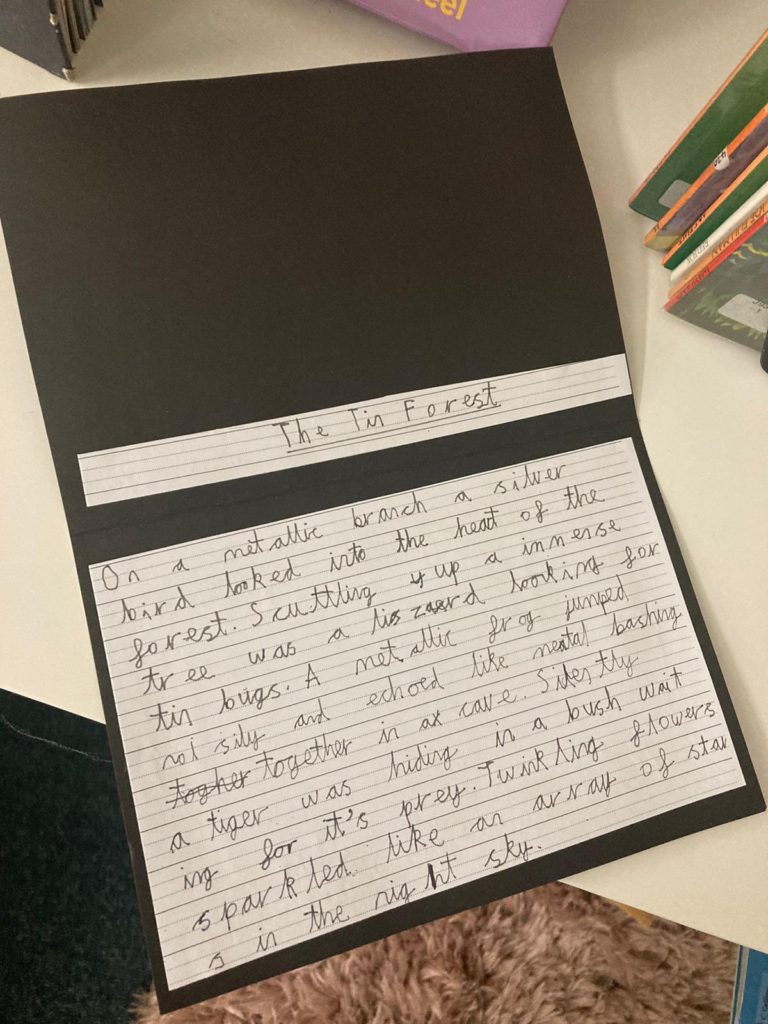 eel
The Tin Forest
On a metallic branch a silver
bird looked into the heat of the
forest. Scuttling up a innense
tree was a lis zaerd looking for
tin bugs. A metallic frog jumped
noisily and echoed like meatal bashing
togher together in ax cave. Silently
a tiger was hiding in a bush wait
ing for it's prey. Twinkling flowers
sparkled like an array of star
s in the night sky.